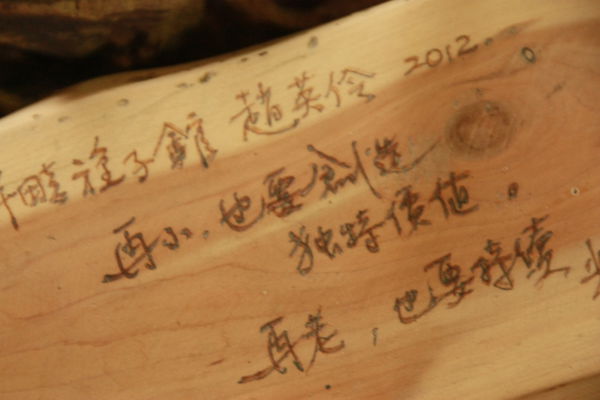 畦種子館 趙英伶 2012.
再小,也要創造
独特價值。
再老,也要持续